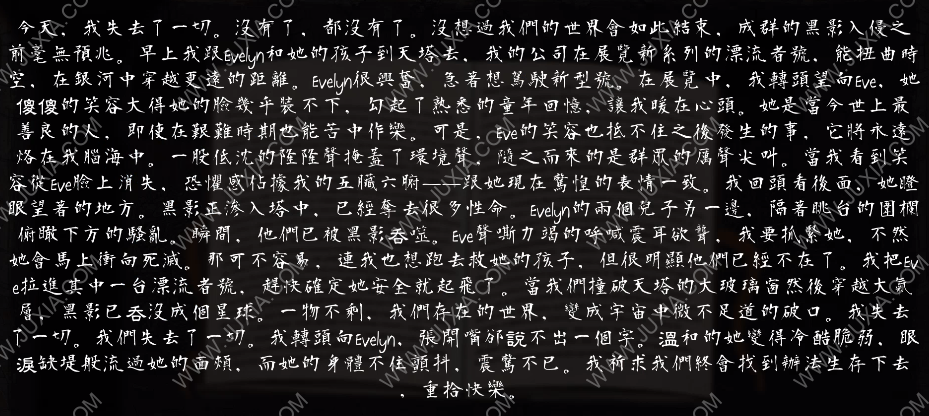 今天，我失去了一切。沒有了，都沒有了。沒想過我們的世界會如此結束，成群的黑影入侵之
前毫無預兆。早上我跟Evelyn和她的孩子到天塔去，我的公司在展覽新系列的漂流者號，能扭曲時
空，在銀河中穿越更遠的距離。Evelyn很興奮，急著想駕駛新型號。在展覽中，我轉頭望向Eve，她
傻傻的笑容大得她的臉幾乎裝不下，勾起了熟悉的童年回憶，讓我暖在心頭。她是當今世上最
善良的人，即使在艱難時期也能苦中作樂。可是，Eve的笑容也抵不住之後發生的事，它將永遠
烙在我腦海中。一股低沈的隆隆聲掩蓋了環境聲，隨之而來的是群眾的厲聲尖叫。當我看到笑
容從Eve臉上消失，恐懼感佔據我的五臟六腑——跟她現在驚惶的表情一致。我回頭看後面，她瞪
眼望著的地方。黑影正滲入塔中，已經奪去很多性命。Evelyn的兩個兒子另一邊，隔著眺台的圍欄
俯瞰下方的騷亂。瞬間，他們已被黑影吞噬。Eve聲嘶力竭的呼喊震耳欲聾，我要抓緊她，不然
她會馬上衝向死滅。那可不容易，連我也想跑去救她的孩子，但很明顯他們已經不在了。我把Ev
e拉進其中一台漂流者號，趕快確定她安全就起飛了。當我們撞破天塔的大玻璃窗然後穿越大氣
層，黑影已吞沒成個星球。一物不剩，我們存在的世界，變成宇宙中微不足道的破口。我失去
了一切。我們失去了一切。我轉頭向Evelyn，張開嘴卻說不出一個字。溫和的她變得冷酷脆弱，眼
淚缺堤般流過她的面頰，而她的身體不住顫抖，震驚不已。我祈求我們終會找到辦法生存下去
，重拾快樂。
WUXIA.COM